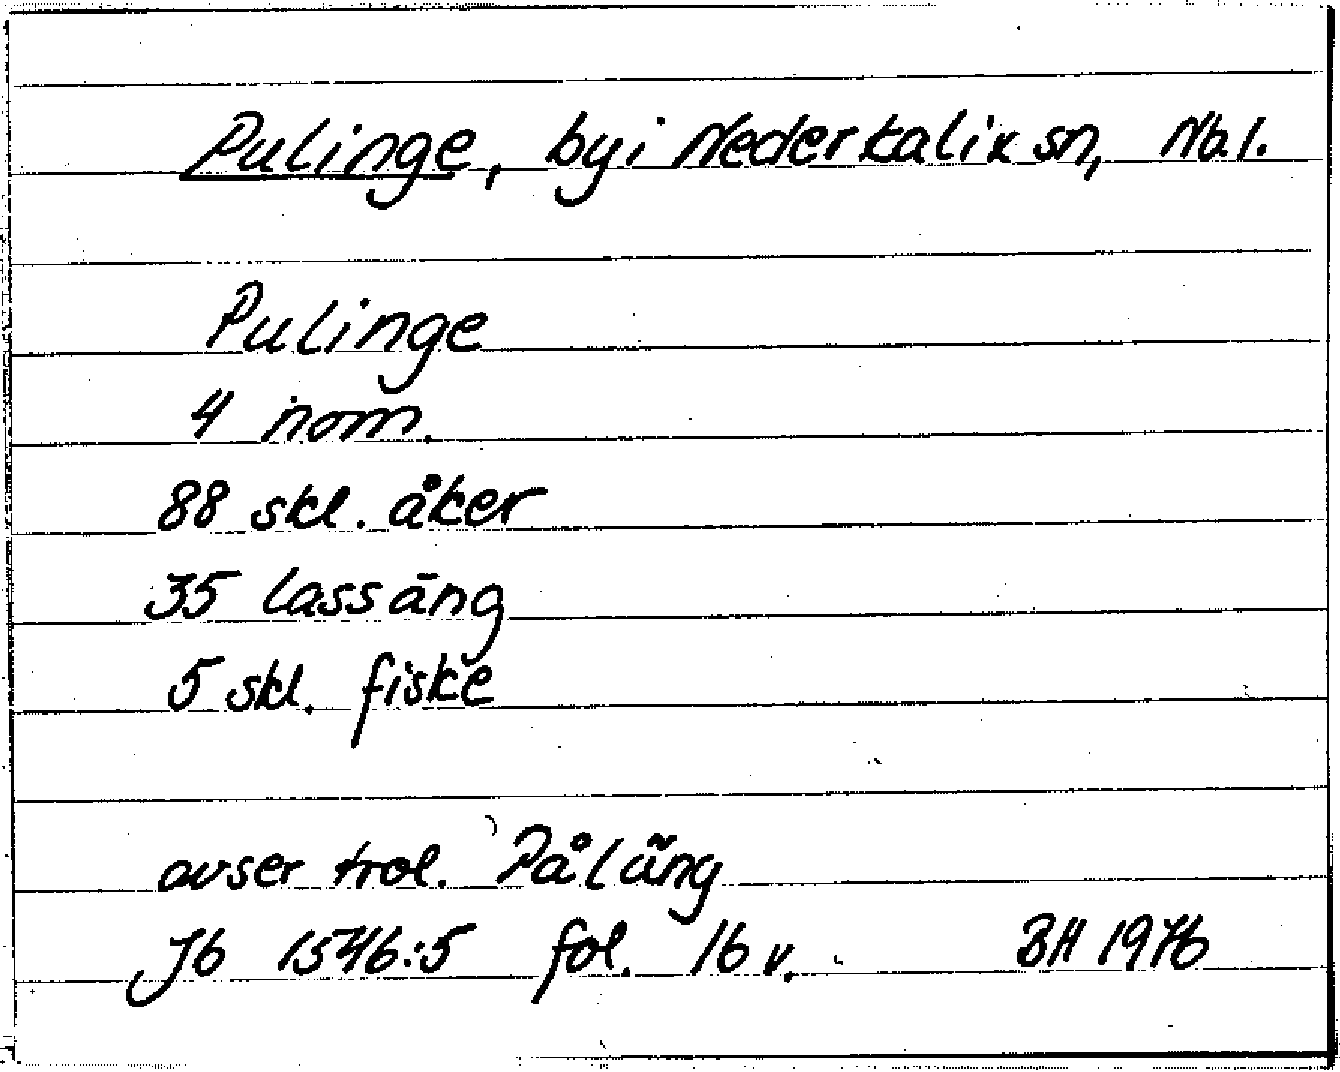 Pulinge, by i Nederkalix sn, Nb. l.
Pulinge
4 nom.
88 skl. åker
35 lass äng
5 skl. fiske
avser trol. Påläng
Jb 1546:5 fol. 16 v. BH 1976